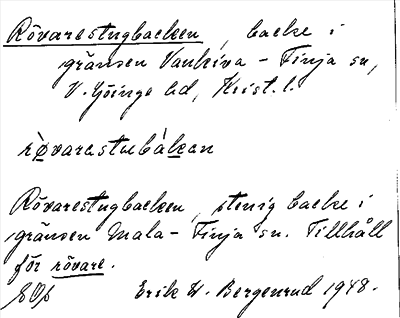 Rövarestugbacken, backe i
gränsen Vankiva - Finja sn,
V. Göinge hd, Krist. l.
rò̱varestubàkan
Rövarestugbacken, stenig backe i
gränsen Mala - Finja sn. Tillhåll
för rövare.
Erik W. Bergenrud 1948.